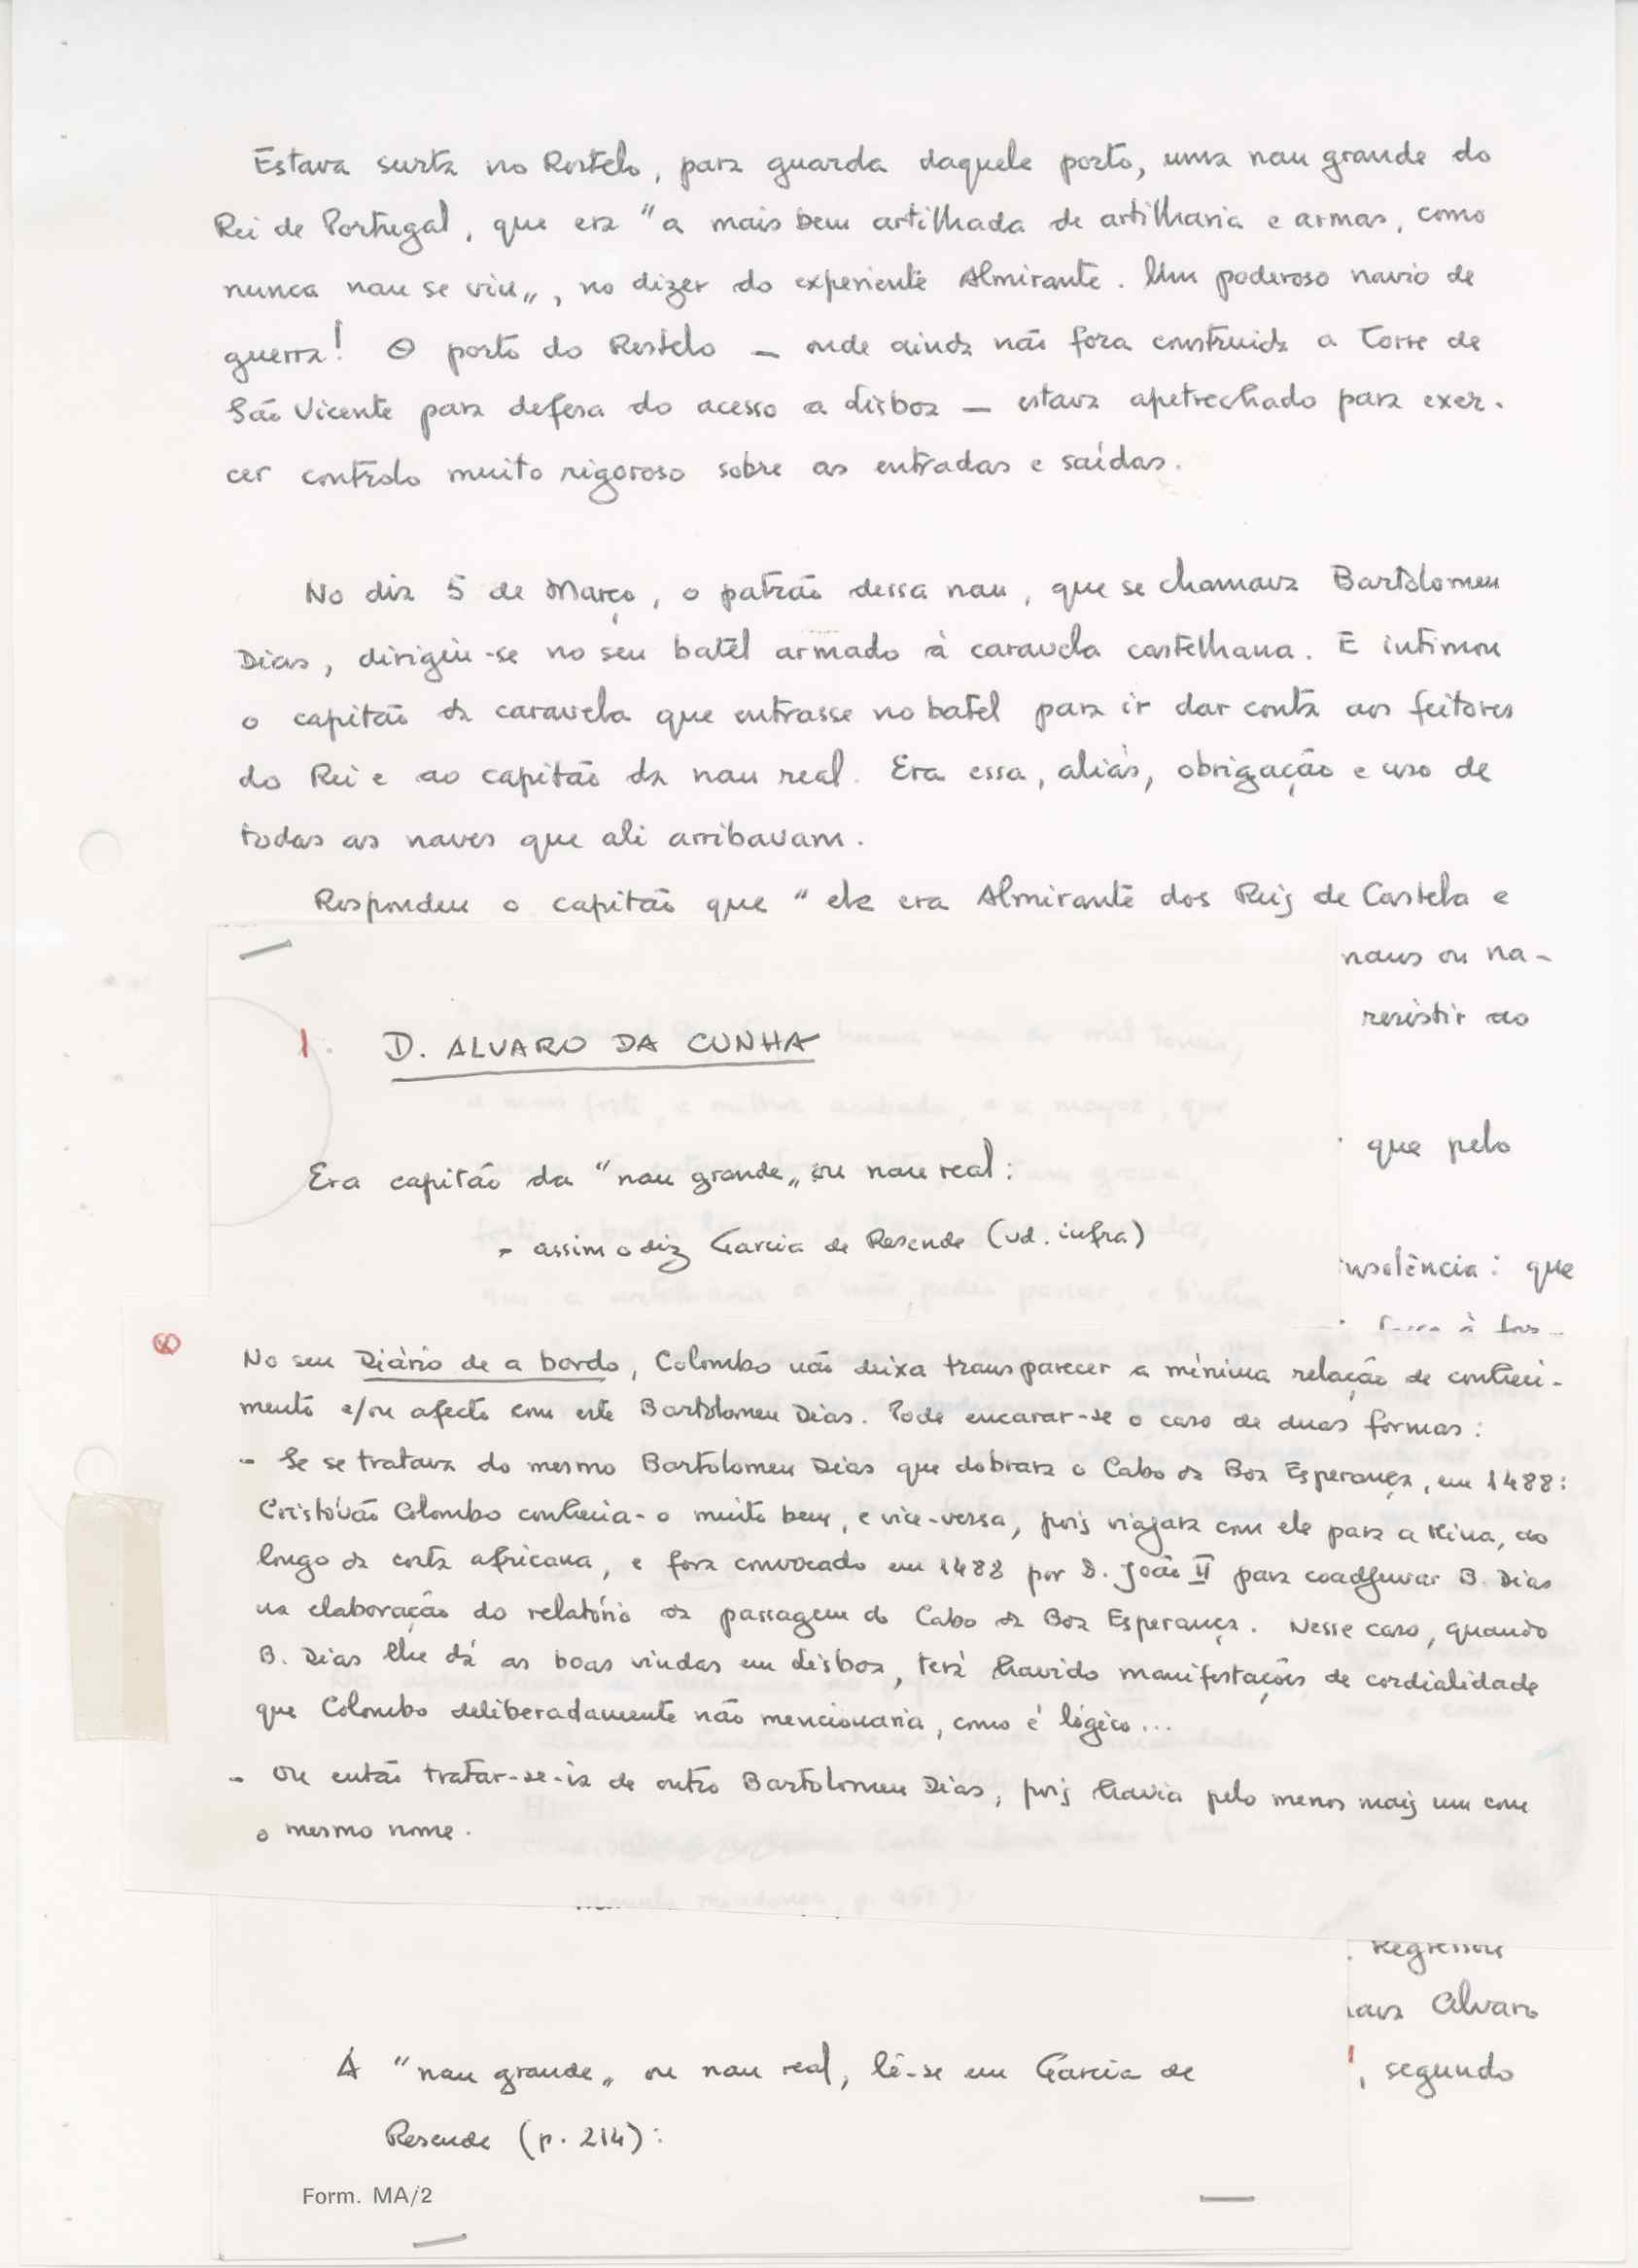 Estava surta no Restelo, para guarda daquele porto, uma nau grande do
Rei de Portugal, que era "a mais bem artilhada de artilharia e armas, como
nunca nau se viu„, no dizer do experiente Almirante. Um poderoso navio de
guerra! O porto do Restelo — onde ainda não fora construida a Torre de
São Vicente para defesa do acesso a Lisboa — estava apetrechado para exer-
cer controlo muito rigoroso sobre as entradas e saídas.
No dia 5 de Março, o patrão dessa nau, que se chamava Bartolomeu
Dias, dirigiu-se no seu batel armado à caravela castelhana. E intimou
o capitão da caravela que entrasse no batel para ir dar conta aos feitores
do Rei e ao capitão da nau real. Era essa, aliás, obrigação e uso de
todas as naves que ali arribavam.
Respondeu o capitão que "ele era Almirante dos Reis de Castela e
naus ou na-
resistir ao
1. D. ALVARO DA CUNHA
que pelo
Era capitão da "nau grande„ ou nau real:
- assim o diz Garcia de Resende (vd. infra)
insolência: que
No seu Diário de a bordo, Colombo não deixa transparecer a mínima relação de conheci-
mento e/ou afecto com este Bartolomeu Dias. Pode encarar-se o caso de duas formas:
- Se se tratava do mesmo Bartolomeu Dias que dobrara o Cabo da Boa Esperança, em 1488:
Cristóvão Colombo conhecia-o muito bem, e vice-versa, pois viajara com ele para a Mina, ao
longo da costa africana, e fora convocado em 1488 por D. João II para coadjuvar B. Dias
na elaboração do relatório da passagem do Cabo da Boa Esperança. Nesse caso, quando
B. Dias lhe dá as boas vindas em Lisboa, terá havido manifestações de cordialidade
que Colombo deliberadamente não mencionaria, como é lógico...
- Ou então tratar-se-ia de outro Bartolomeu Dias, pois havia pelo menos mais um com
o mesmo nome.
Regressou
Alvaro
A "nau grande„ ou nau real, lê-se em Garcia de
, segundo
Resende (p. 214):
Form. MA/2